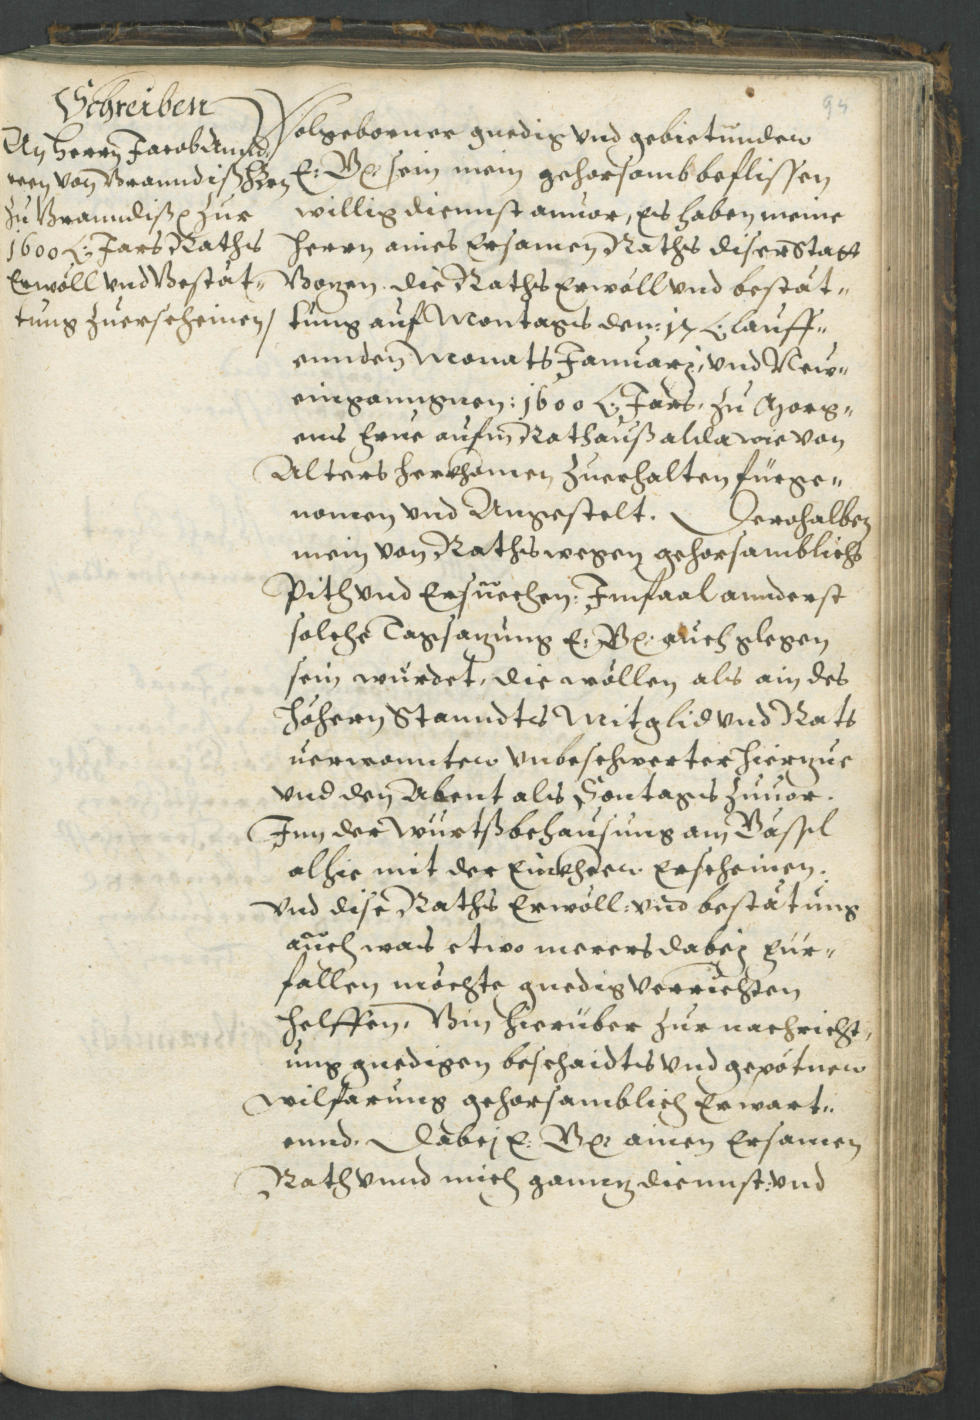 94
Schreiben
An herrn Jacob Annd:
reen von Branndiß Fhrn
zu Branndiß p zur
1600 t: Jars Raths
Erwöll und Bestät-
tung zuerscheinen /
Wolgeborner gnedig und gebietunder
E: Gn: sein mein gehorsamb beflissen
willig diennst anuor, Es haben meine
herrn aines Ersamen Raths diser Statt
Bozen die Raths Erwöll und bestät-
tung auf Montags den: 17 t: lauff-
ennden Monats Januarj, und New-
eingannngnen: 1600 t: Jars, zu Morg-
ens Frue aufm Rathauß alda wie von
Alters herkhomen zuerhalten fürge-
nomen und Angestelt. Derohalben
mein von Raths wegen gehorsamblichs
Pith und Ersuechen: Imfaal annderst
solche Tagsazung E: Gn: auch glegen
sein wurdet, die wöllen als ain des
höhern Stanndts Mitglid und Rats
uerwonnter unbeschwerter hierzue
und den Abent als Sontags zuuor.
Inn der Würtßbehausung am Rössl
alhie mit der Einkherr Erscheinen.
Und dise Raths Erwöll: und bestätung
auch was etwo merers dabej für-
fallen möchte gnedig verrichten
helffen, Bin hierüber zur nachricht-
ung gnedigen beschaidts und gepötner
wilfarung gehorsamblich Erwart-
ennd. Dabej E: Gn: ainen Ersamen
Rath unnd mich gannz diennst: und